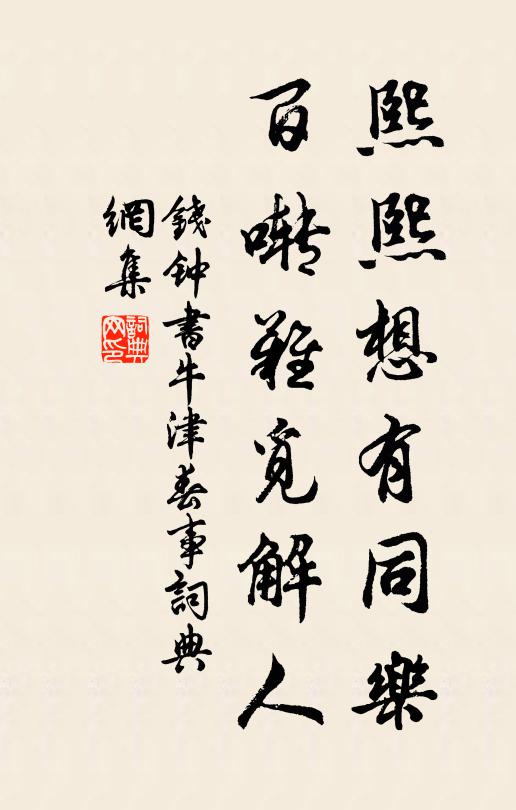 熙熙想有同樂
百囀難覓解人
錢钟書牛津春事詞典
網集
詞典
网印